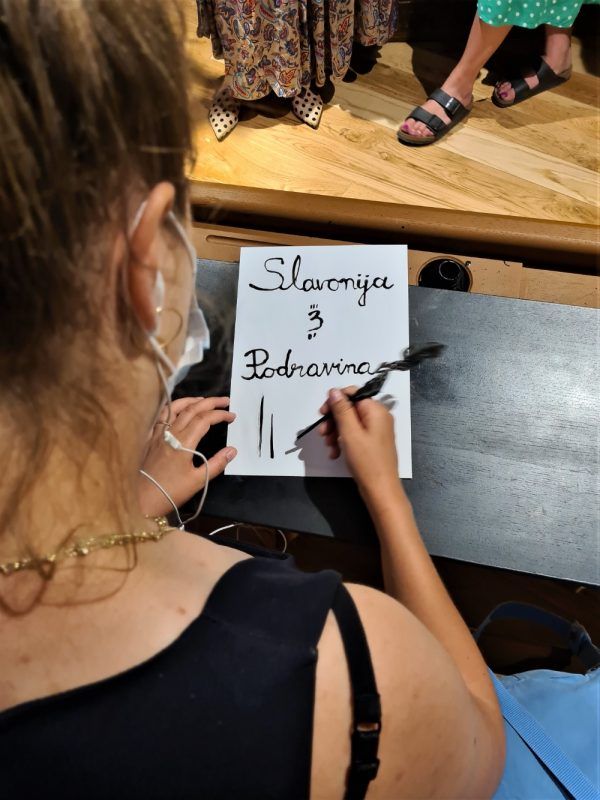 Slavonija
&
Podravina
||